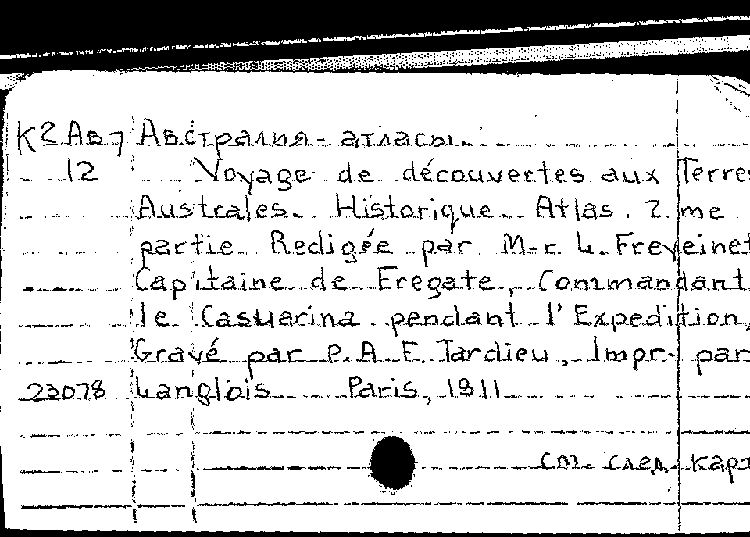 К2 Ав7 Австралия - атласы.
12 Voyage de découvertes aux Terres
Australes. Historique. Atlas. 2.me
partie Redigée par M-r L. Freyeinet
Capitaine de Fregate, Commandant
le Casuarina pendant l'Expedition,
Gravé par P.A.F. Tardieu, Impr. par
23078 Langlois Paris, 1811
см. след. карт